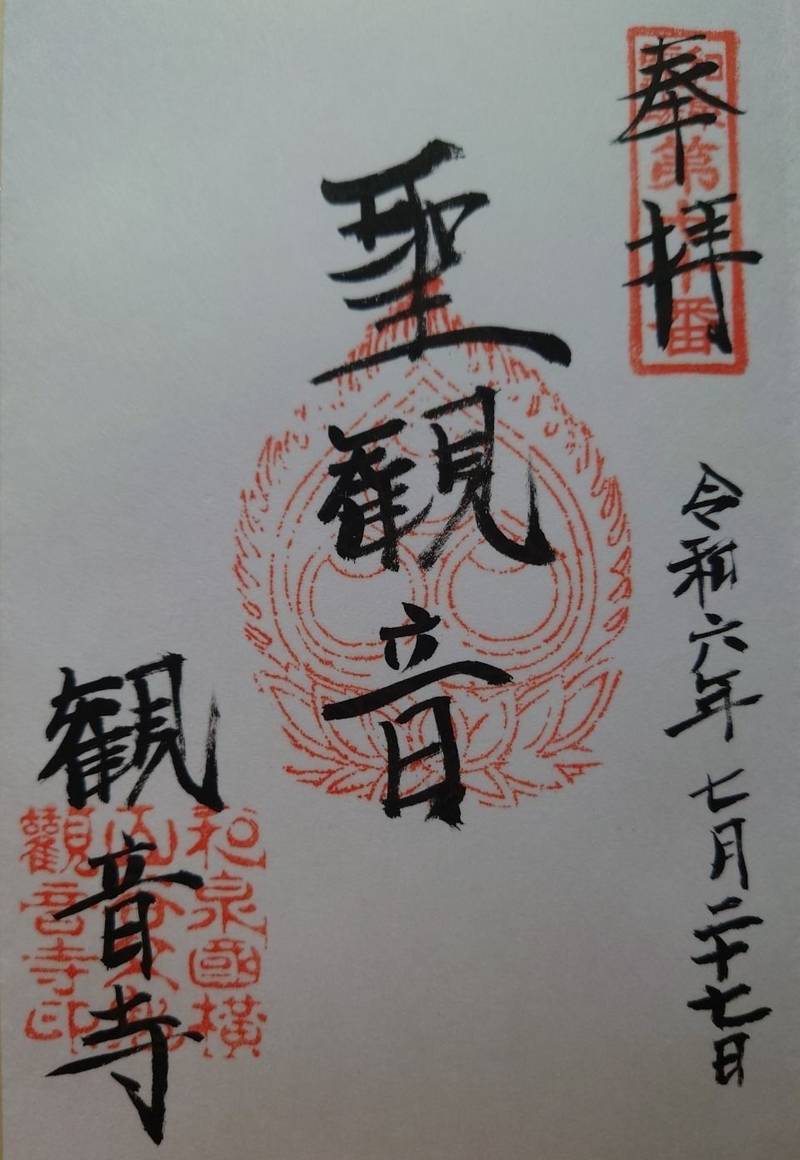 奉拝
令和六年七月二十七日
聖観音
観音寺
和泉國横
觀音寺印